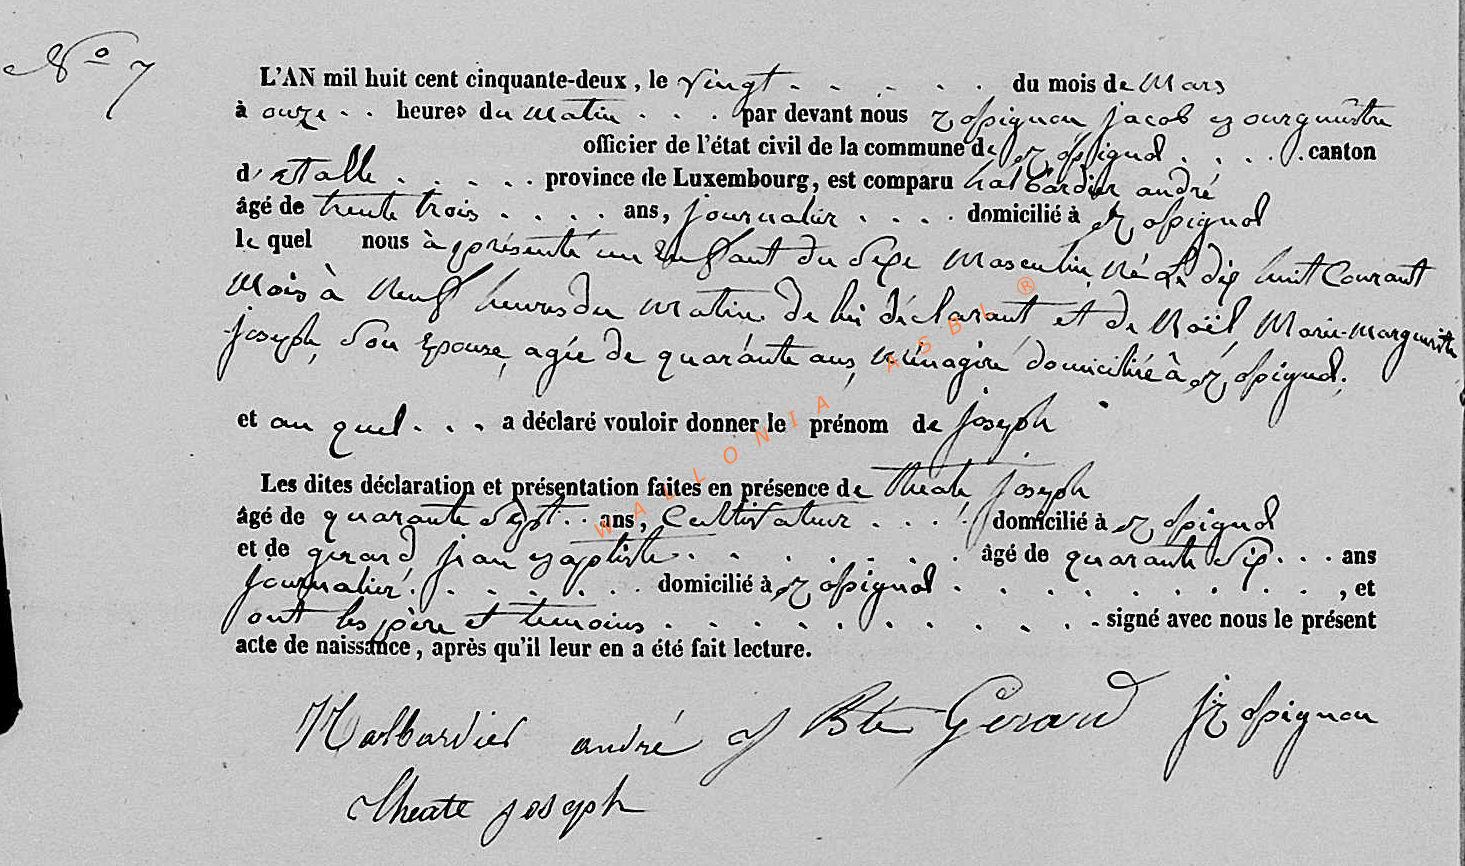 N° 7
L'AN mil huit cent cinquante-deux, le vingt . . . . . . du mois de Mars
à onze . . heures du matin . . . par devant nous Rossignon jacob Bourgmêstre
officier de l'état civil de la commune de Rossignol . . . . . canton
d'Etalle . . . . . province de Luxembourg, est comparu halbardier andré
âgé de trente trois . . . . ans, journalier . . . . domicilié à Rossignol
le quel nous à présenté un Enfant du Sexe Masculin, Né Le dix huit Courant
Mois à Neuf heures du matin de lui déclarant et de Noël, Marie-Marguerite
joseph, Son Epouse, agée de quarante ans, Ménagère domiciliée à Rossignol,
et au quel . . . a déclaré vouloir donner le prénom de joseph
Les dites déclaration et présentation faites en présence de theate joseph
âgé de quarante Sept . . ans, Cultivateur . . . . domicilié à Rossignol
et de gerard jean Baptiste . . . . . . . âgé de quarante Six . . . ans
journalier . . . . . . domicilié à Rossignol . . . . . . . . . , et
ont les père et temoins . . . . . . . . . . . signé avec nous le présent
acte de naissance, après qu'il leur en a été fait lecture.
Halbardier andré J Bte Gerard J Rossignon
theate joseph
WALLONIA ASBL ®